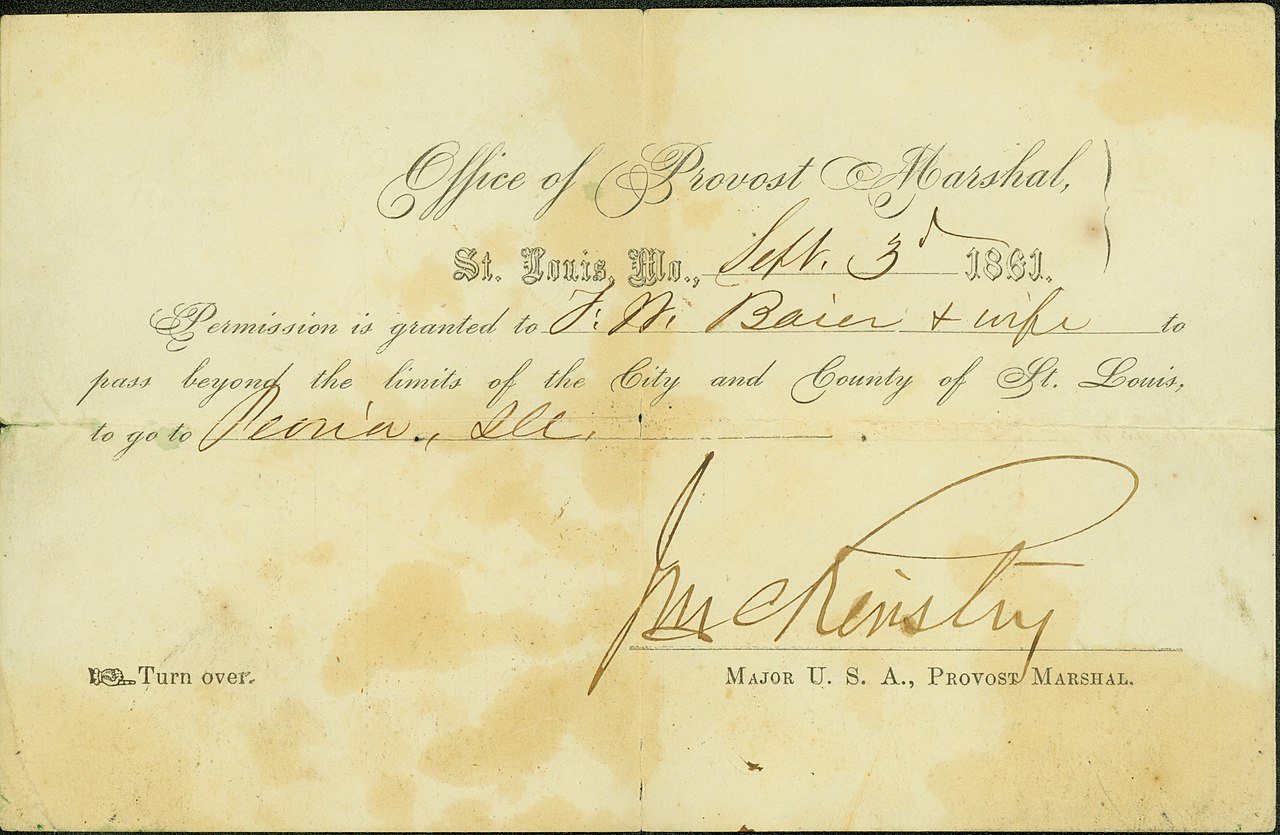 Office of Provost Marshal,
St. Louis, Mo., Sept. 3d 1861.
Permission is granted to F. W. Baier + wife to
pass beyond the limits of the City and County of St. Louis,
to go to Peoria, Ill.
J McKinstry
Turn over.
Major U. S. A., Provost Marshal.